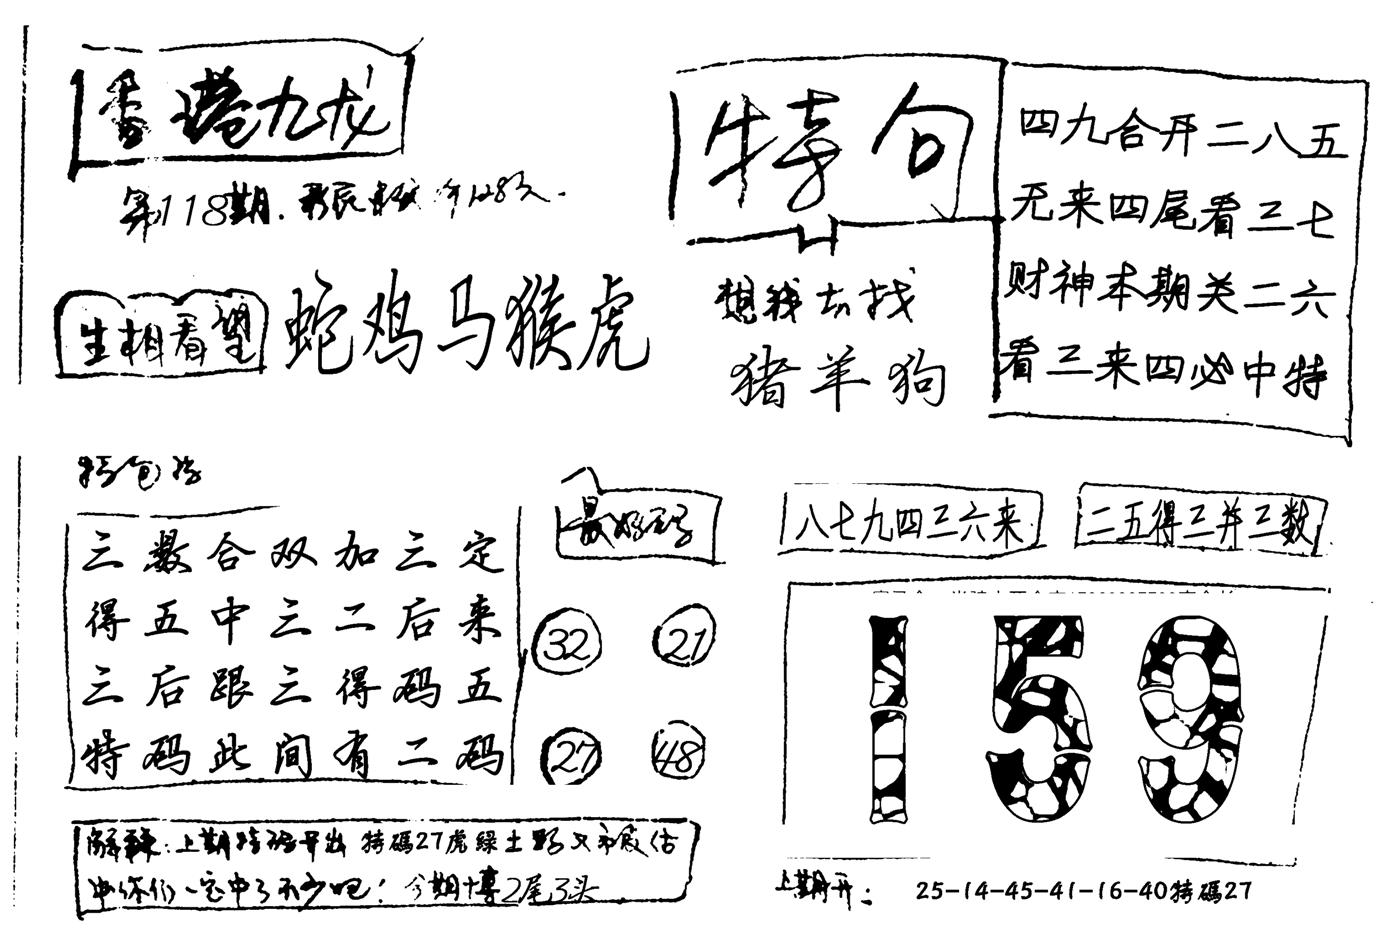 香港九龙
第118期.
生相看望
蛇鸡马猴虎
特句
想钱去找
猪羊狗
四九合开二八五
无来四尾看三七
财神本期关二六
看三来四必中特
三数合双加三定
得五中三二后来
三后跟三得码五
特码此间有二码
32 21
27 48
八七九四三六来
二五得三并三数
159
上期特码开出 特碼27虎绿土
你们一定中了不少吧！今期博2尾3头
上期开：25-14-45-41-16-40特碼27